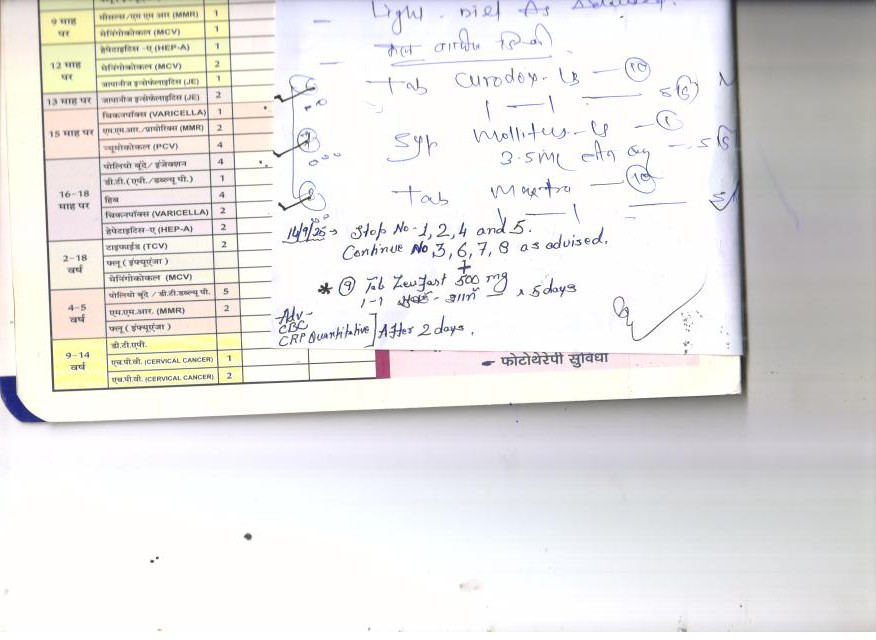 9 माह पर
मीसल्स/एम एम आर (MMR) 1
मेनिंगोकोकल (MCV) 1
12 माह पर
हेपेटाइटिस -ए (HEP-A) 1
मेनिंगोकोकल (MCV) 2
जापानीज इन्सेफेलाइटिस (JE) 1
13 माह पर जापानीज इन्सेफेलाइटिस (JE) 2
15 माह पर
चिकनपॉक्स (VARICELLA) 1
एम.एम.आर./प्रायोरिक्स (MMR) 2
न्यूमोकोकल (PCV) 4
16-18 माह पर
पोलियो बूंदे/ इंजेक्शन 4
डी.टी.(एपी./डब्ल्यू पी.) 1
हिब 4
चिकनपॉक्स (VARICELLA) 2
हेपेटाइटिस-ए (HEP-A) 2
2-18 वर्ष
टाइफाईड (TCV) 2
फ्लू ( इंफ्यूएंजा )
मेनिंगोकोकल (MCV)
4-5 वर्ष
पोलियो बूंदे / डी.टी.डब्ल्यू पी. 5
एम.एम.आर. (MMR) 2
फ्लू ( इंफ्यूएंजा )
9-14 वर्ष
डी.टी.एपी.
एच.पी.वी. (CERVICAL CANCER) 1
एच.पी.वी. (CERVICAL CANCER) 2
- Light. Diet As
Tab Curodox-LB - 10
1 - 1
Syp - 1
3.5ml
Tab - 10
1 - 1
14/9/25→ Stop No-1,2,4 and 5.
Continue No,3,6,7,8 as advised.
+
* 9 Tab 500 mg
1-1 - x 5 days
Adv-
CBC
CRP Quantitative] After 2 days.
- फोटोथेरेपी सुविधा